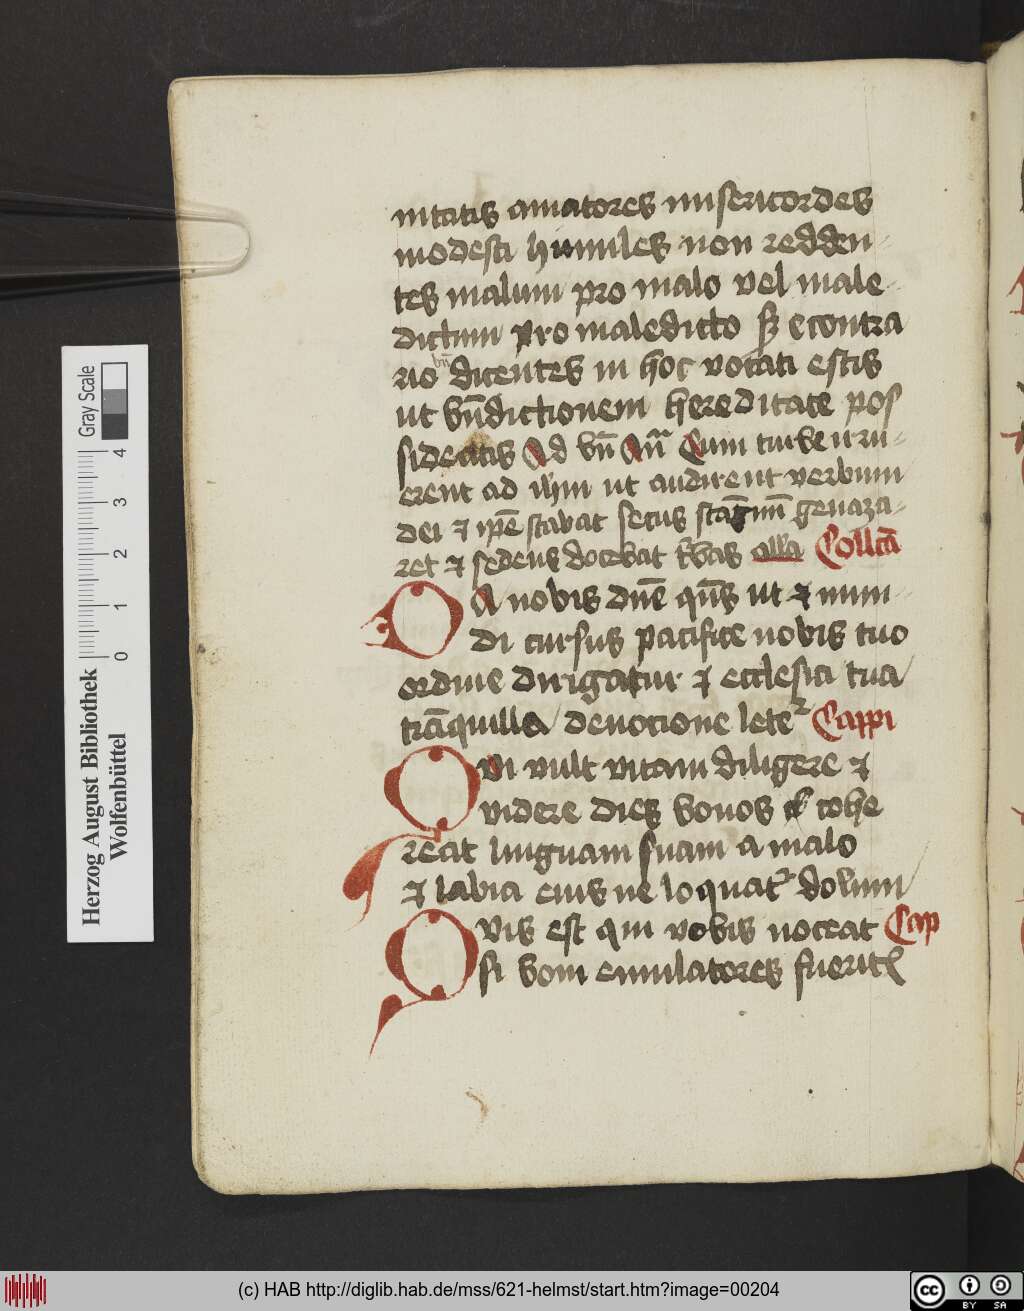 nitatis amatores misericordes
modesti humiles non redden-
tes malum pro malo vel male-
dictum pro maledicto sʒ econtra
rio bn̄ dicentes in hoc vocati estis
ut bn̄dictionem hereditate pos
sideatis Ad bn̄ An̄ Cum turbe irru-
erent ad ihm ut audirent verbum
dei ⁊ ip̄e stabat secus stāgnū genaza-
ret ⁊ sedens docebat t̄bas alla Collcā
DA nobis dn̄e qn̄s ut ⁊ mun-
di cursus pacifice nobis tuo
ordine dirigatur ⁊ ecclesia tua
trāquilla devotione leteꝛ Cappi
Qvi vult vitam diligere ⁊
videre dies bonos cohe
reat linguam suam a malo
⁊ labia eius ne loquat᷑ dolum
Qvis est qui vobis noceat Cap
si boni emulatores fueritis
Herzog August Bibliothek
Wolfenbüttel
0 1 2 3 4
Gray Scale
(c) HAB http://diglib.hab.de/mss/621-helmst/start.htm?image=00204
cc BY SA